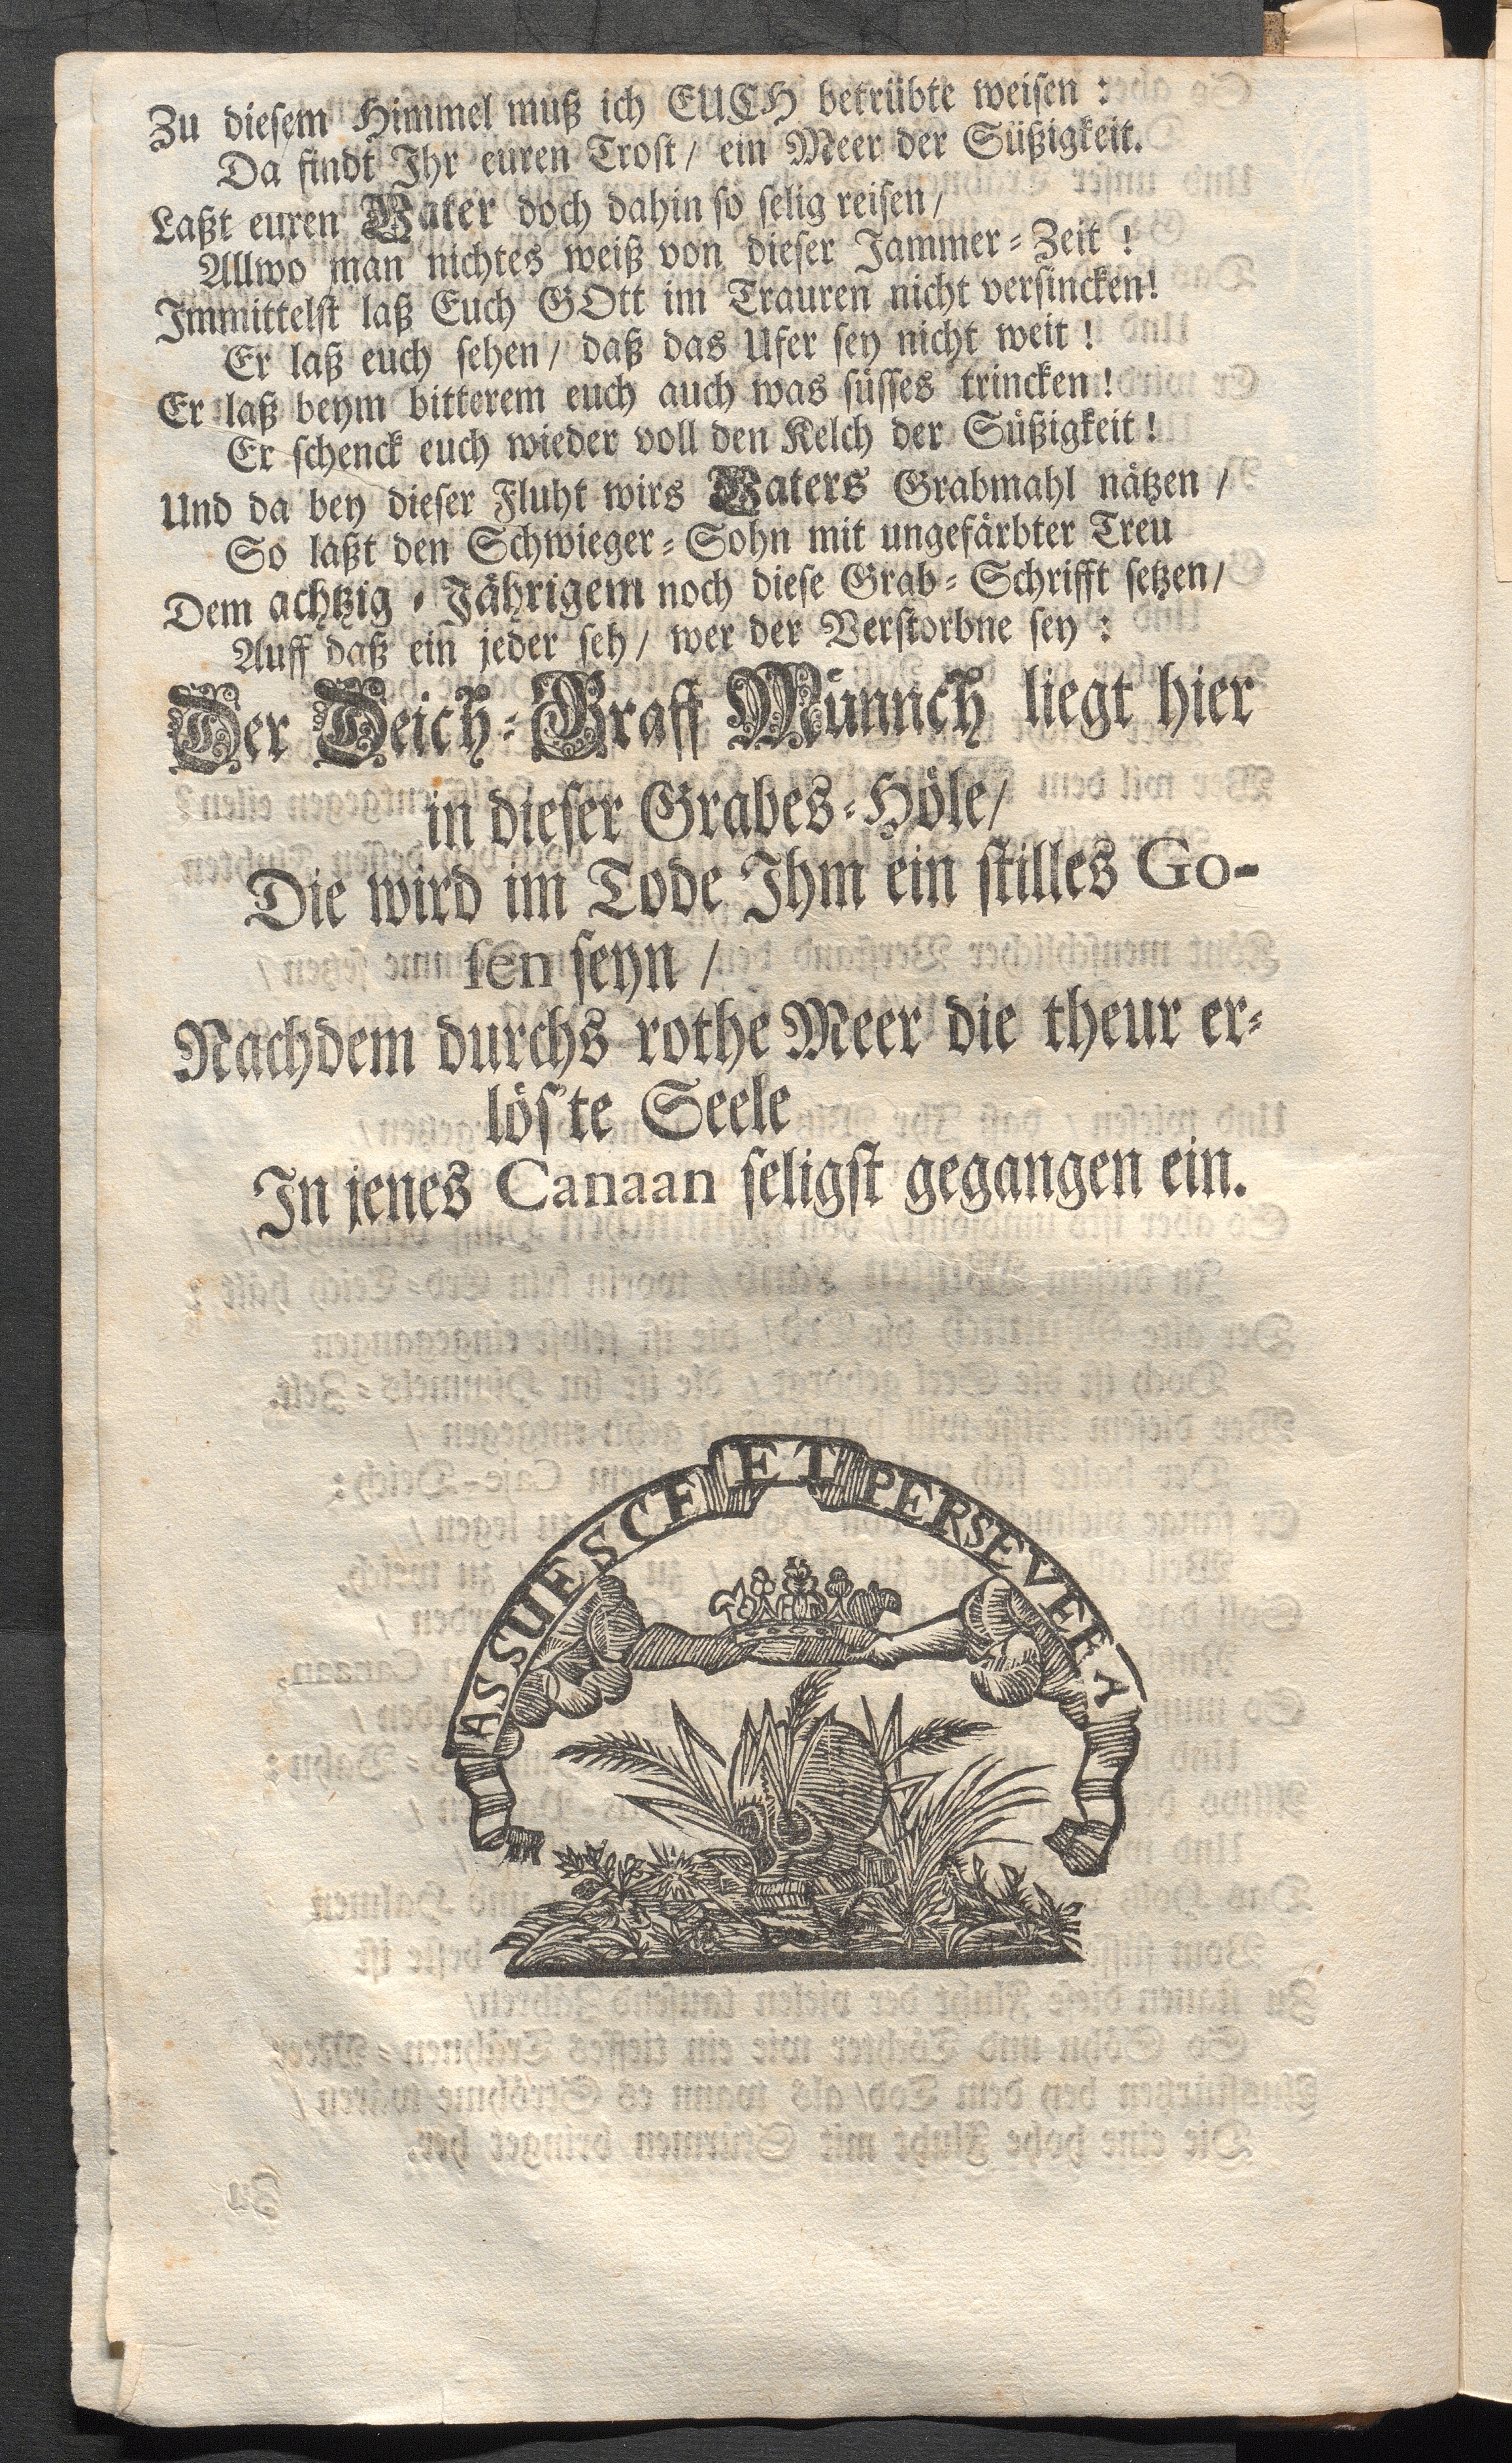 Zu diesem Himmel muß ich EUCH betrübte weisen :
Da findt Ihr euren Trost / ein Meer der Süßigkeit.
Laßt euren Vater doch dahin so selig reisen /
Allwo man nichtes weiß von dieser Jammer-Zeit !
Immittelst laß Euch GOtt im Trauren nicht versincken!
Er laß euch sehen / daß das Ufer sey nicht weit !
Er laß beym bitterem euch auch was süsses trincken !
Er schenck euch wieder voll den Kelch der Süßigkeit !
Und da bey dieser Fluht wirs Vaters Grabmahl nätzen /
So laßt den Schwieger-Sohn mit ungefärbter Treu
Dem achtzig-Jährigem noch diese Grab-Schrifft setzen /
Auff daß ein jeder seh / wer der Verstorbne sey :
Der Deich-Graff Münnch liegt hier
in dieser Grabes-Höle /
Die wird im Tode Ihm ein stilles Go-
sen seyn /
Nachdem durchs rothe Meer die theur er-
lös'te Seele
In jenes Canaan seligst gegangen ein.
ASSUESCE ET PERSEVERA